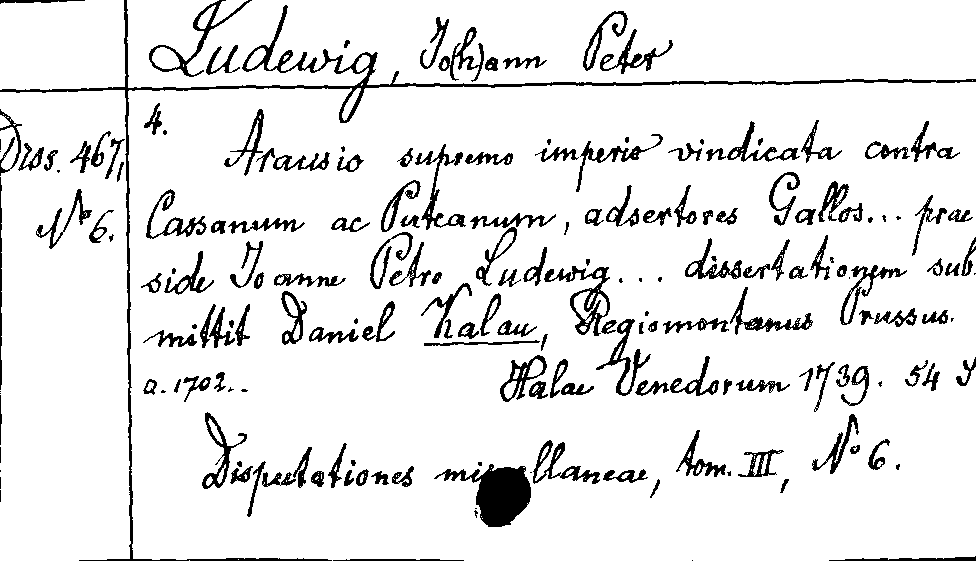 Ludewig, Jo(h)ann Peter
4.
Diss. 467,
N° 6.
Arausio supremo imperio vindicata contra
Cassanum ac Puteanum, adsertores Gallos... prae
side Joanne Petro Ludewig... dissertationem sub
mittit Daniel Kalau, Regiomontanus Prussus.
a. 1702.. Halae Venedorum 1739. 54 S
Disputationes miscellaneae, tom. III, N° 6.